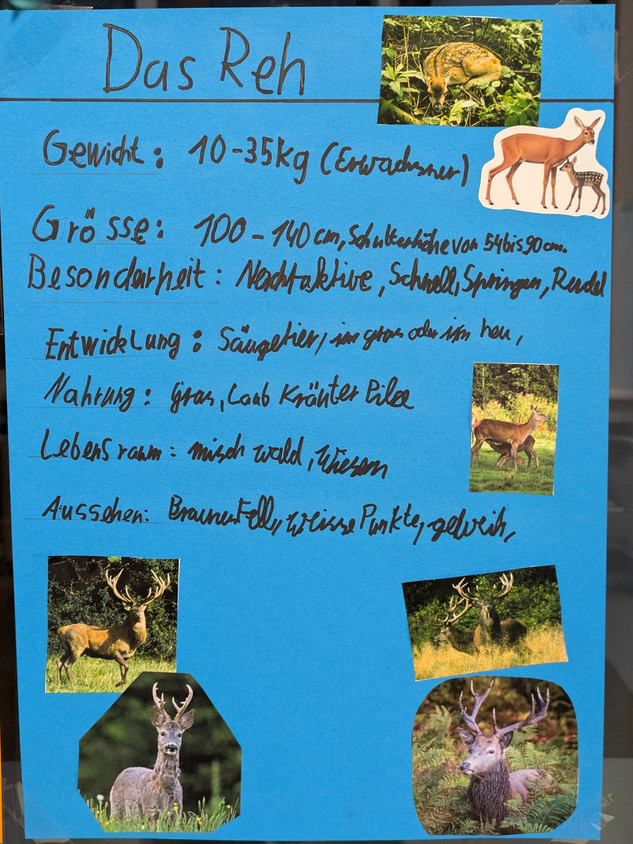 Das Reh
Gewicht: 10-35kg (Erwachsner)
Grösse: 100-140 cm, Schulterhöhe von 54 bis 90 cm.
Besonderheit: Nachtaktive, Schnell, Springen, Rudel
Entwicklung: Säugetier, im gras oder im heu,
Nahrung: Gras, Laub Kräuter Pilze
Lebensraum: misch wald, Wiesen
Aussehen: Braunes Fell, Weisse Punkte, geweih,